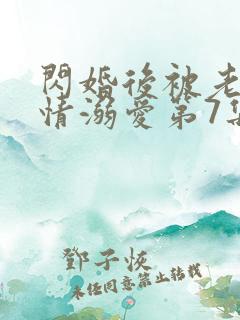 閃婚後被老
情溺愛第7集
鄧子恢
未任同意禁止轉載